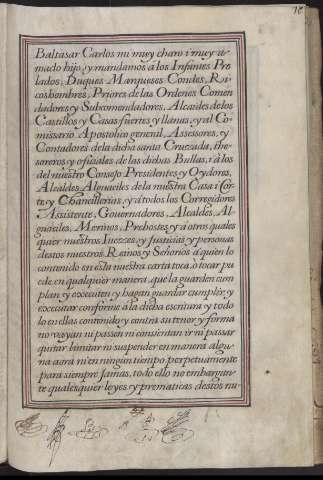 Baltasar Carlos mi muy charo i muy a-
mado hijo, y mandamos á los Infantes Pre
lados, Duques Marqueses Condes, Ri
coshombres, Priores de las Ordenes Comen
dadores y Subcomendadores, Alcaides de los
Castillos y Casas fuertes y llanas, y al Co-
missario Apostolico general, Assessores, y
Contadores de la dicha santa Cruzada, the-
soreros y oficiales de las dichas Bullas, i á los
del nuestro Consejo Presidentes y Oydores,
Alcaldes Alguaciles de la nuestra Casa i Cor
te y Chancillerias, y á todos los Corregidores
Assistente, Governadores, Alcaldes, Al-
guaciles, Merinos, Prebostes y a otros quales
quier nuestros Iuezes y Justicias y personas
destos nuestros Reinos y Señorios á quien lo
contenido en esta nuestra carta toca, ó tocar pu
ede en qualquier manera que la guarden cum
plan y executen y hagan guardar cumplir y
executar conforme á la dicha escritura y todo
lo en ellas contenido y contra su tenor y forma
no vayan ni passen ni consientan ir ni passar
quitar limitar ni suspender en manera algu-
na aora ni en ningun tiempo perpetuamente
para siempre jamas, todo ello no embargan-
te qualesquier leyes y prematicas destos nu-